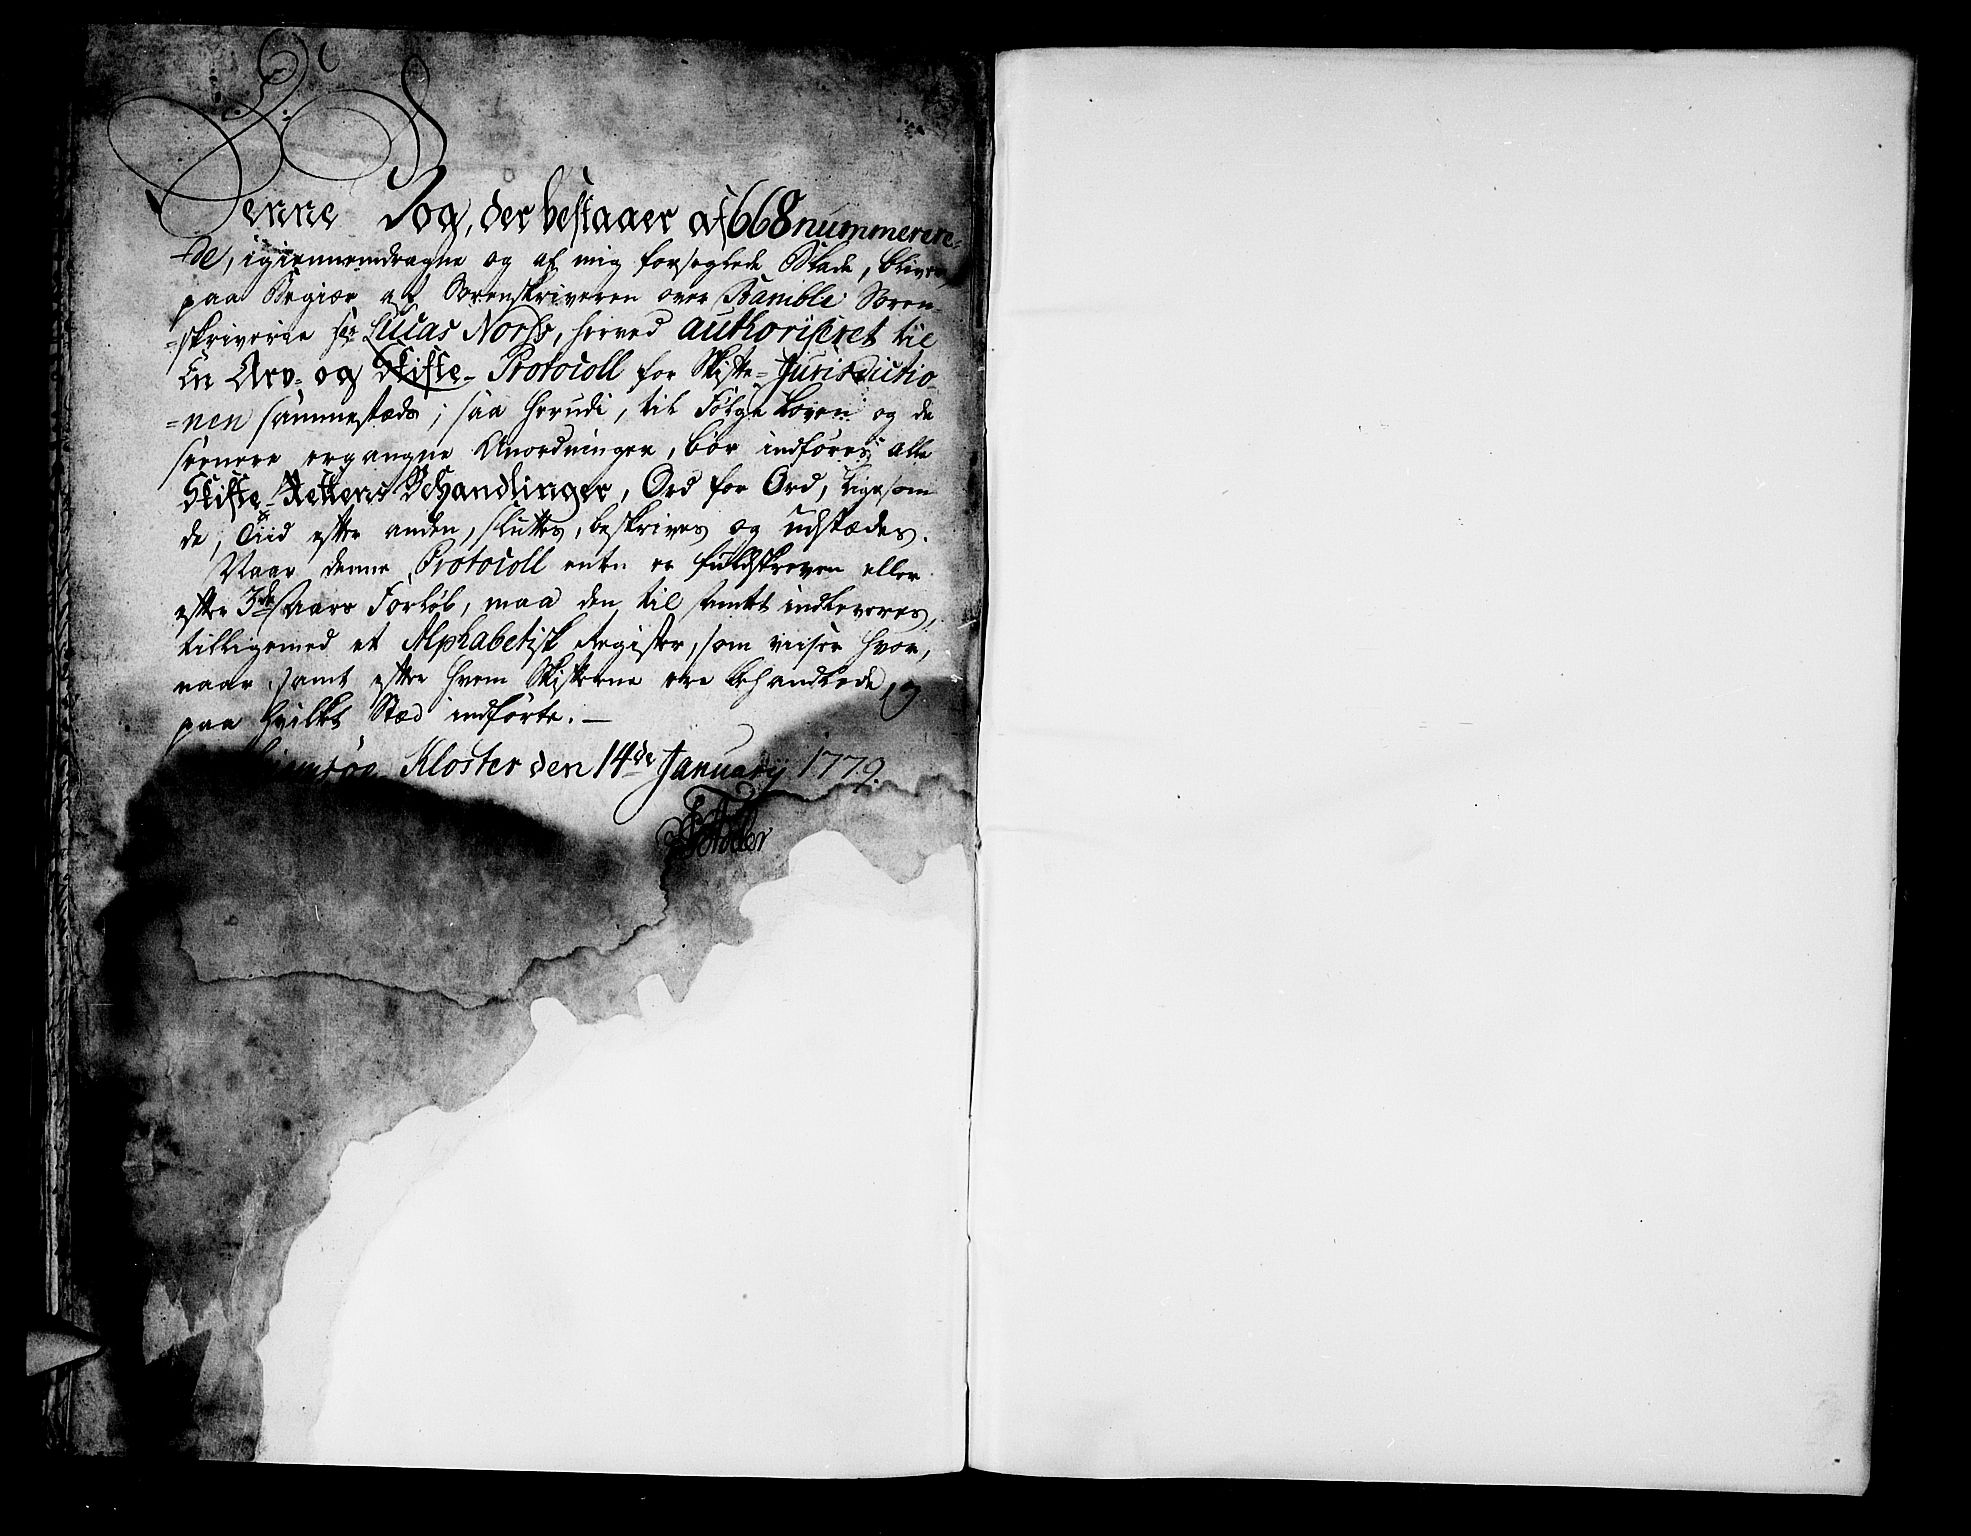 Denne Bog, der bestaaer af 668 nummerere-
de, igiennemdragne og af mig forseglede Blade, bliver,
paa Begiær af Sorenskriveren over Bamble Soren-
=skriverie Hr Lucas Norss, herved authoriseret til
en Arv- og Skifte- Protocoll for Skifte-Jurisdictio-
=nen sammestæds; saa herudi, til Følge Loven og de
seenere ergangne Anordninger, bør indføres alle
Skifte-Rettens Behandlinger, Ord for Ord, ligesom
de, Tiid efter anden, sluttes, beskrives og udstædes.
Naar denne Protocoll enten er fuldskreven eller
efter 3de Aars Forløb, maa den til Amtet indleveres,
tilligemed et Alphabetisk Register, som viiser hvor,
naar samt efter hvem Skifterne ere behandlede, og
paa hvilket Stæd indførte. —
Kloster den 14de Januarij 1779.